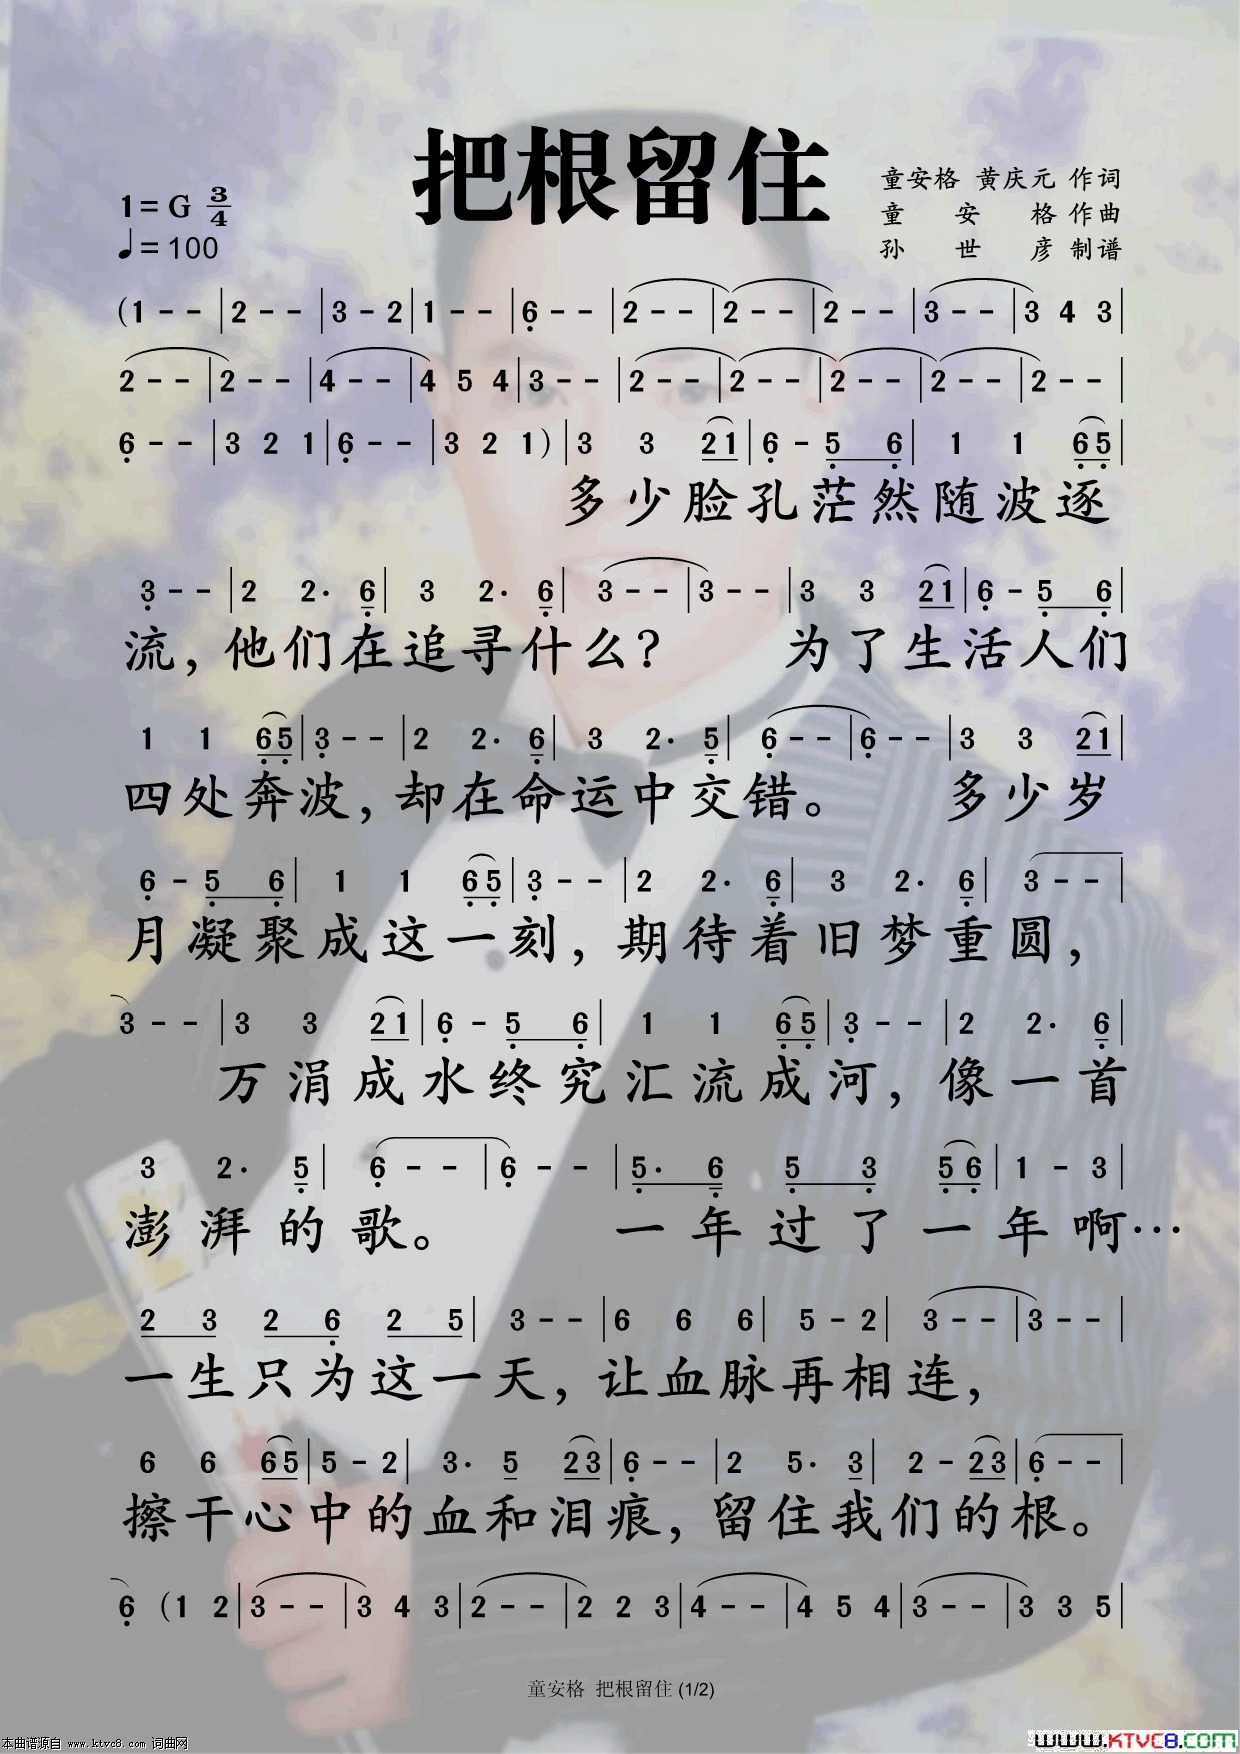 把根留住
童安格 黄庆元 作词
童安格 作曲
孙世彦 制谱
1=G 3/4
♩=100
(1 - - | 2 - - | 3 - 2 | 1 - - | 6 - - | 2 - - | 2 - - | 2 - - | 3 - - | 3 4 3 |
2 - - | 2 - - | 4 - - | 4 5 4 | 3 - - | 2 - - | 2 - - | 2 - - | 2 - - | 2 - - |
6 - - | 3 2 1 | 6 - - | 3 2 1 ) | 3 3 2 1 | 6 - 5 6 | 1 1 6 5 |
多少脸孔茫然随波逐
3 - - | 2 2· 6 | 3 2· 6 | 3 - - | 3 - - | 3 3 2 1 | 6 - 5 6 |
流，他们在追寻什么？ 为了生活人们
1 1 6 5 | 3 - - | 2 2· 6 | 3 2· 5 | 6 - - | 6 - - | 3 3 2 1 |
四处奔波，却在命运中交错。 多少岁
6 - 5 6 | 1 1 6 5 | 3 - - | 2 2· 6 | 3 2· 6 | 3 - - |
月凝聚成这一刻，期待着旧梦重圆，
3 - - | 3 3 2 1 | 6 - 5 6 | 1 1 6 5 | 3 - - | 2 2· 6 |
万涓成水终究汇流成河，像一首
3 2· 5 | 6 - - | 6 - - | 5· 6 5 3 5 6 | 1 - 3 |
澎湃的歌。 一年过了一年啊…
2 3 2 6 2 5 | 3 - - | 6 6 6 | 5 - 2 | 3 - - | 3 - - |
一生只为这一天，让血脉再相连，
6 6 6 5 | 5 - 2 | 3· 5 2 3 | 6 - - | 2 5· 3 | 2 - 2 3 | 6 - - |
擦干心中的血和泪痕，留住我们的根。
6 (1 2 | 3 - - | 3 4 3 | 2 - - | 2 2 3 | 4 - - | 4 5 4 | 3 - - | 3 3 5 |
童安格 把根留住 (1/2)
本曲谱源自 www.ktvc8.com 词曲网
www.KTVC8.com